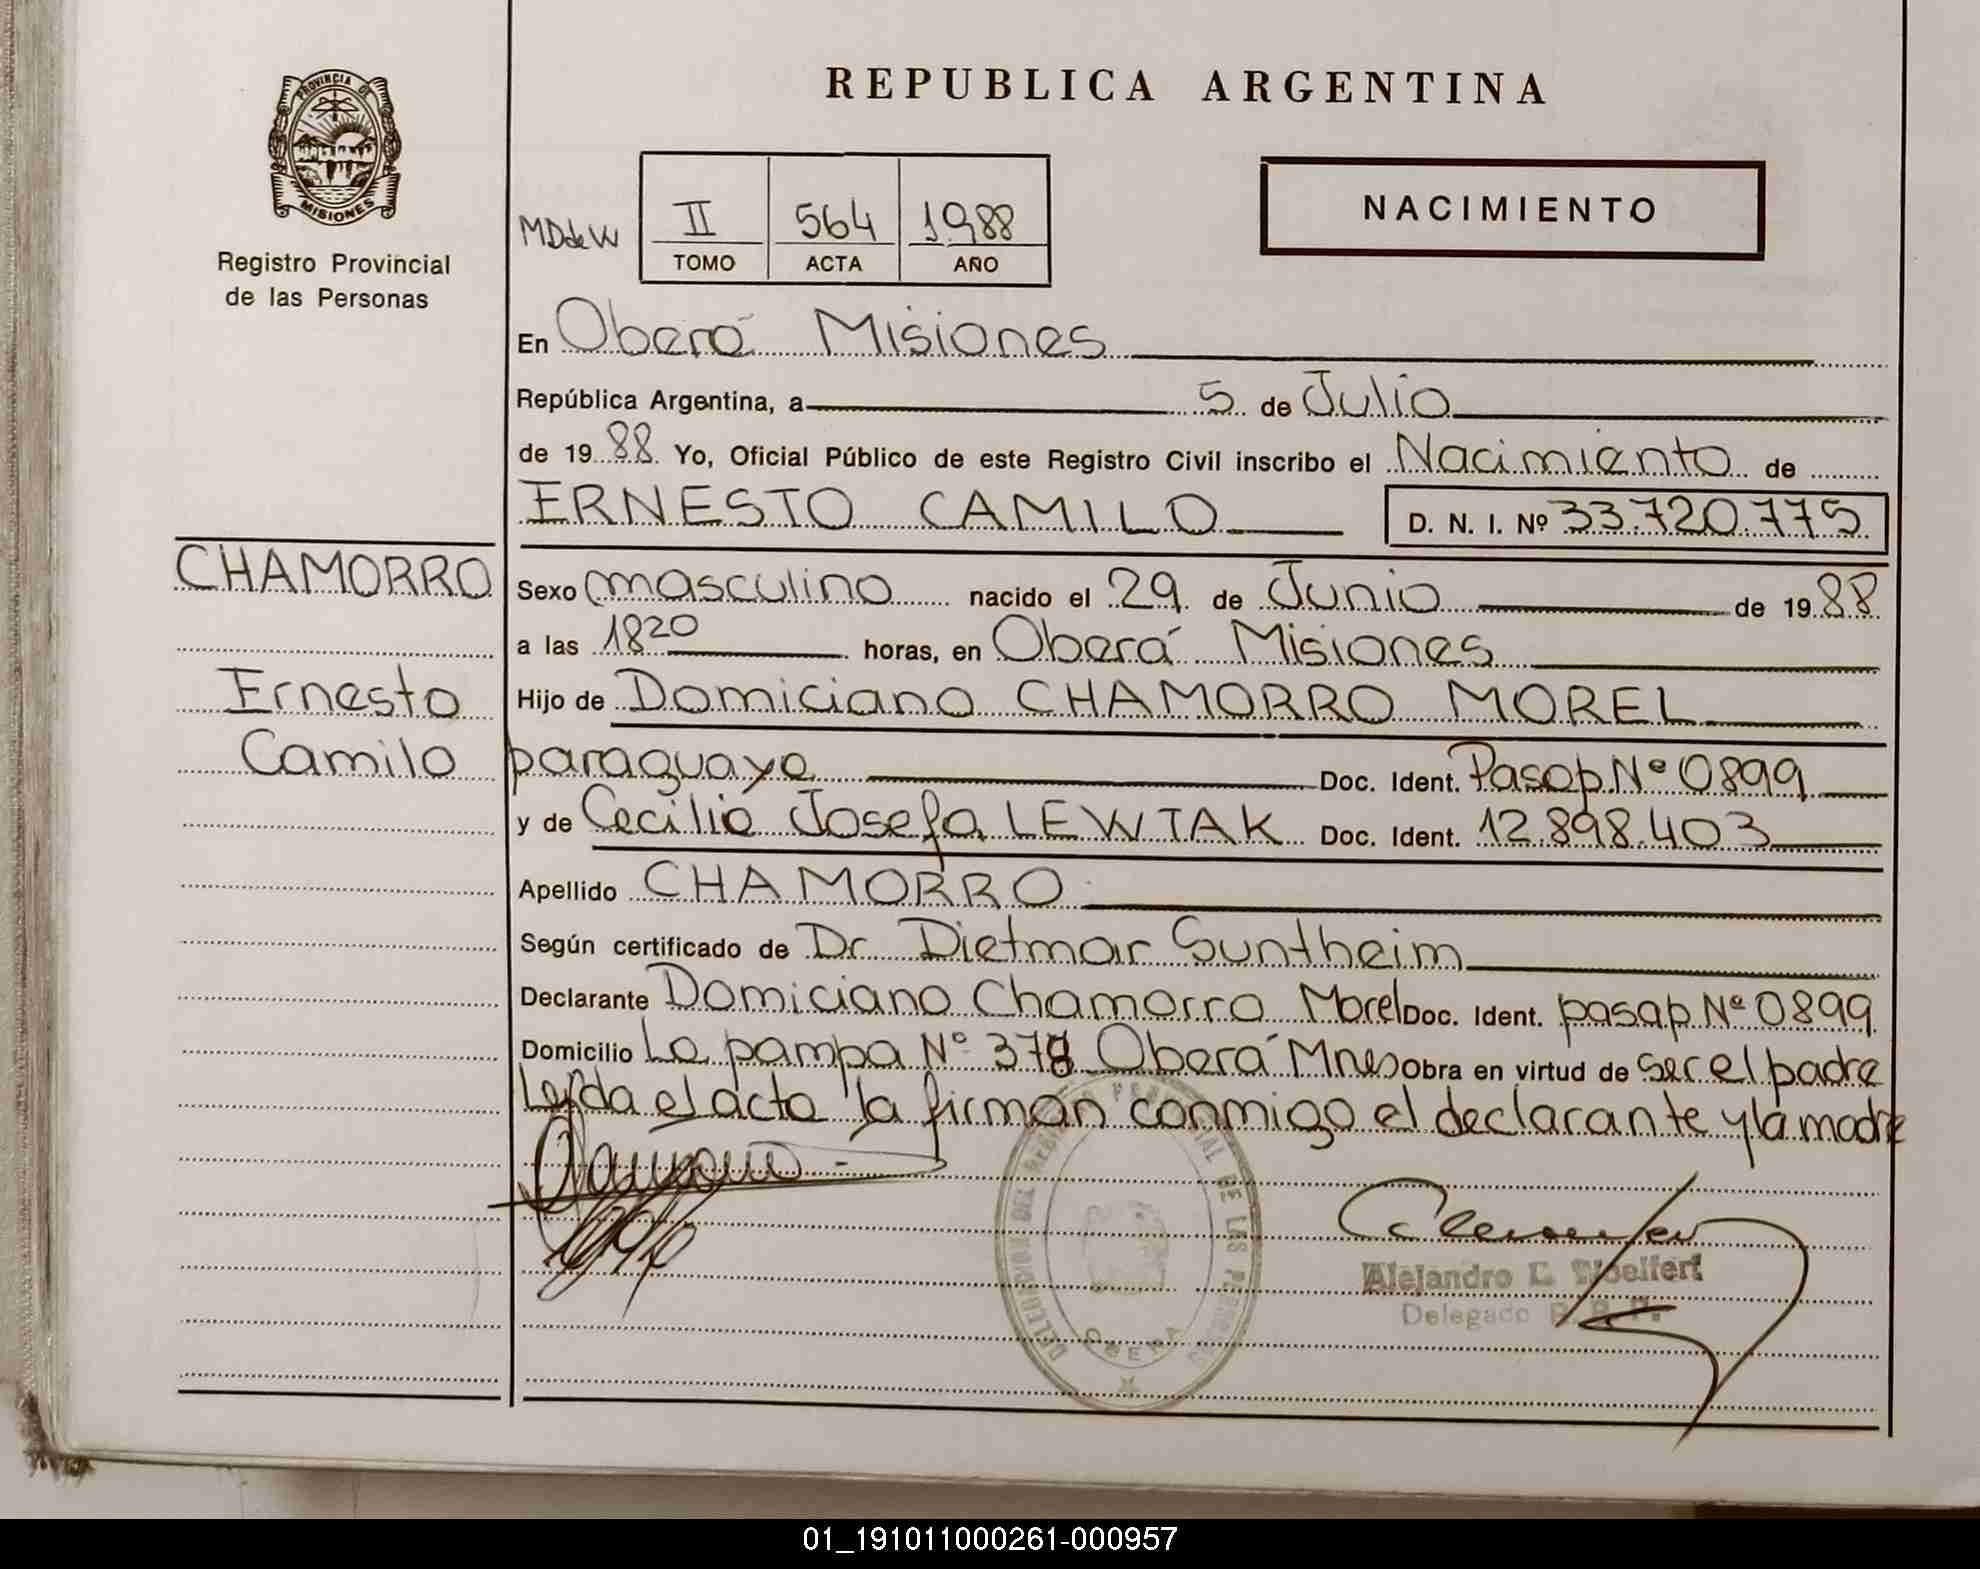 REPUBLICA ARGENTINA
PROVINCIA DE
MISIONES
Registro Provincial
de las Personas
MDdeW
II 564 1988
TOMO ACTA AÑO
NACIMIENTO
En Oberá Misiones
República Argentina, a 5 de Julio
de 1988 Yo, Oficial Público de este Registro Civil inscribo el Nacimiento de
ERNESTO CAMILO D. N. I. Nº 33.720.775
CHAMORRO
Ernesto
Camilo
Sexo masculino nacido el 29 de Junio de 1988
a las 1820 horas, en Oberá Misiones
Hijo de Domiciano CHAMORRO MOREL
paraguayo Doc. Ident. Pasap Nº 0899
y de Cecilia Josefa LEWTAK Doc. Ident. 12.898.403
Apellido CHAMORRO
Según certificado de Dr. Dietmar Suntheim
Declarante Domiciano Chamorro Morel Doc. Ident. pasap Nº 0899
Domicilio La pampa Nº 378 Oberá Mnes Obra en virtud de ser el padre
Leída el acta la firman conmigo el declarante y la madre
DELEGACION DEL REGISTRO PROVINCIAL DE LAS PERSONAS
OBERA
Alejandro
Delegado R. P. P.
01_191011000261-000957